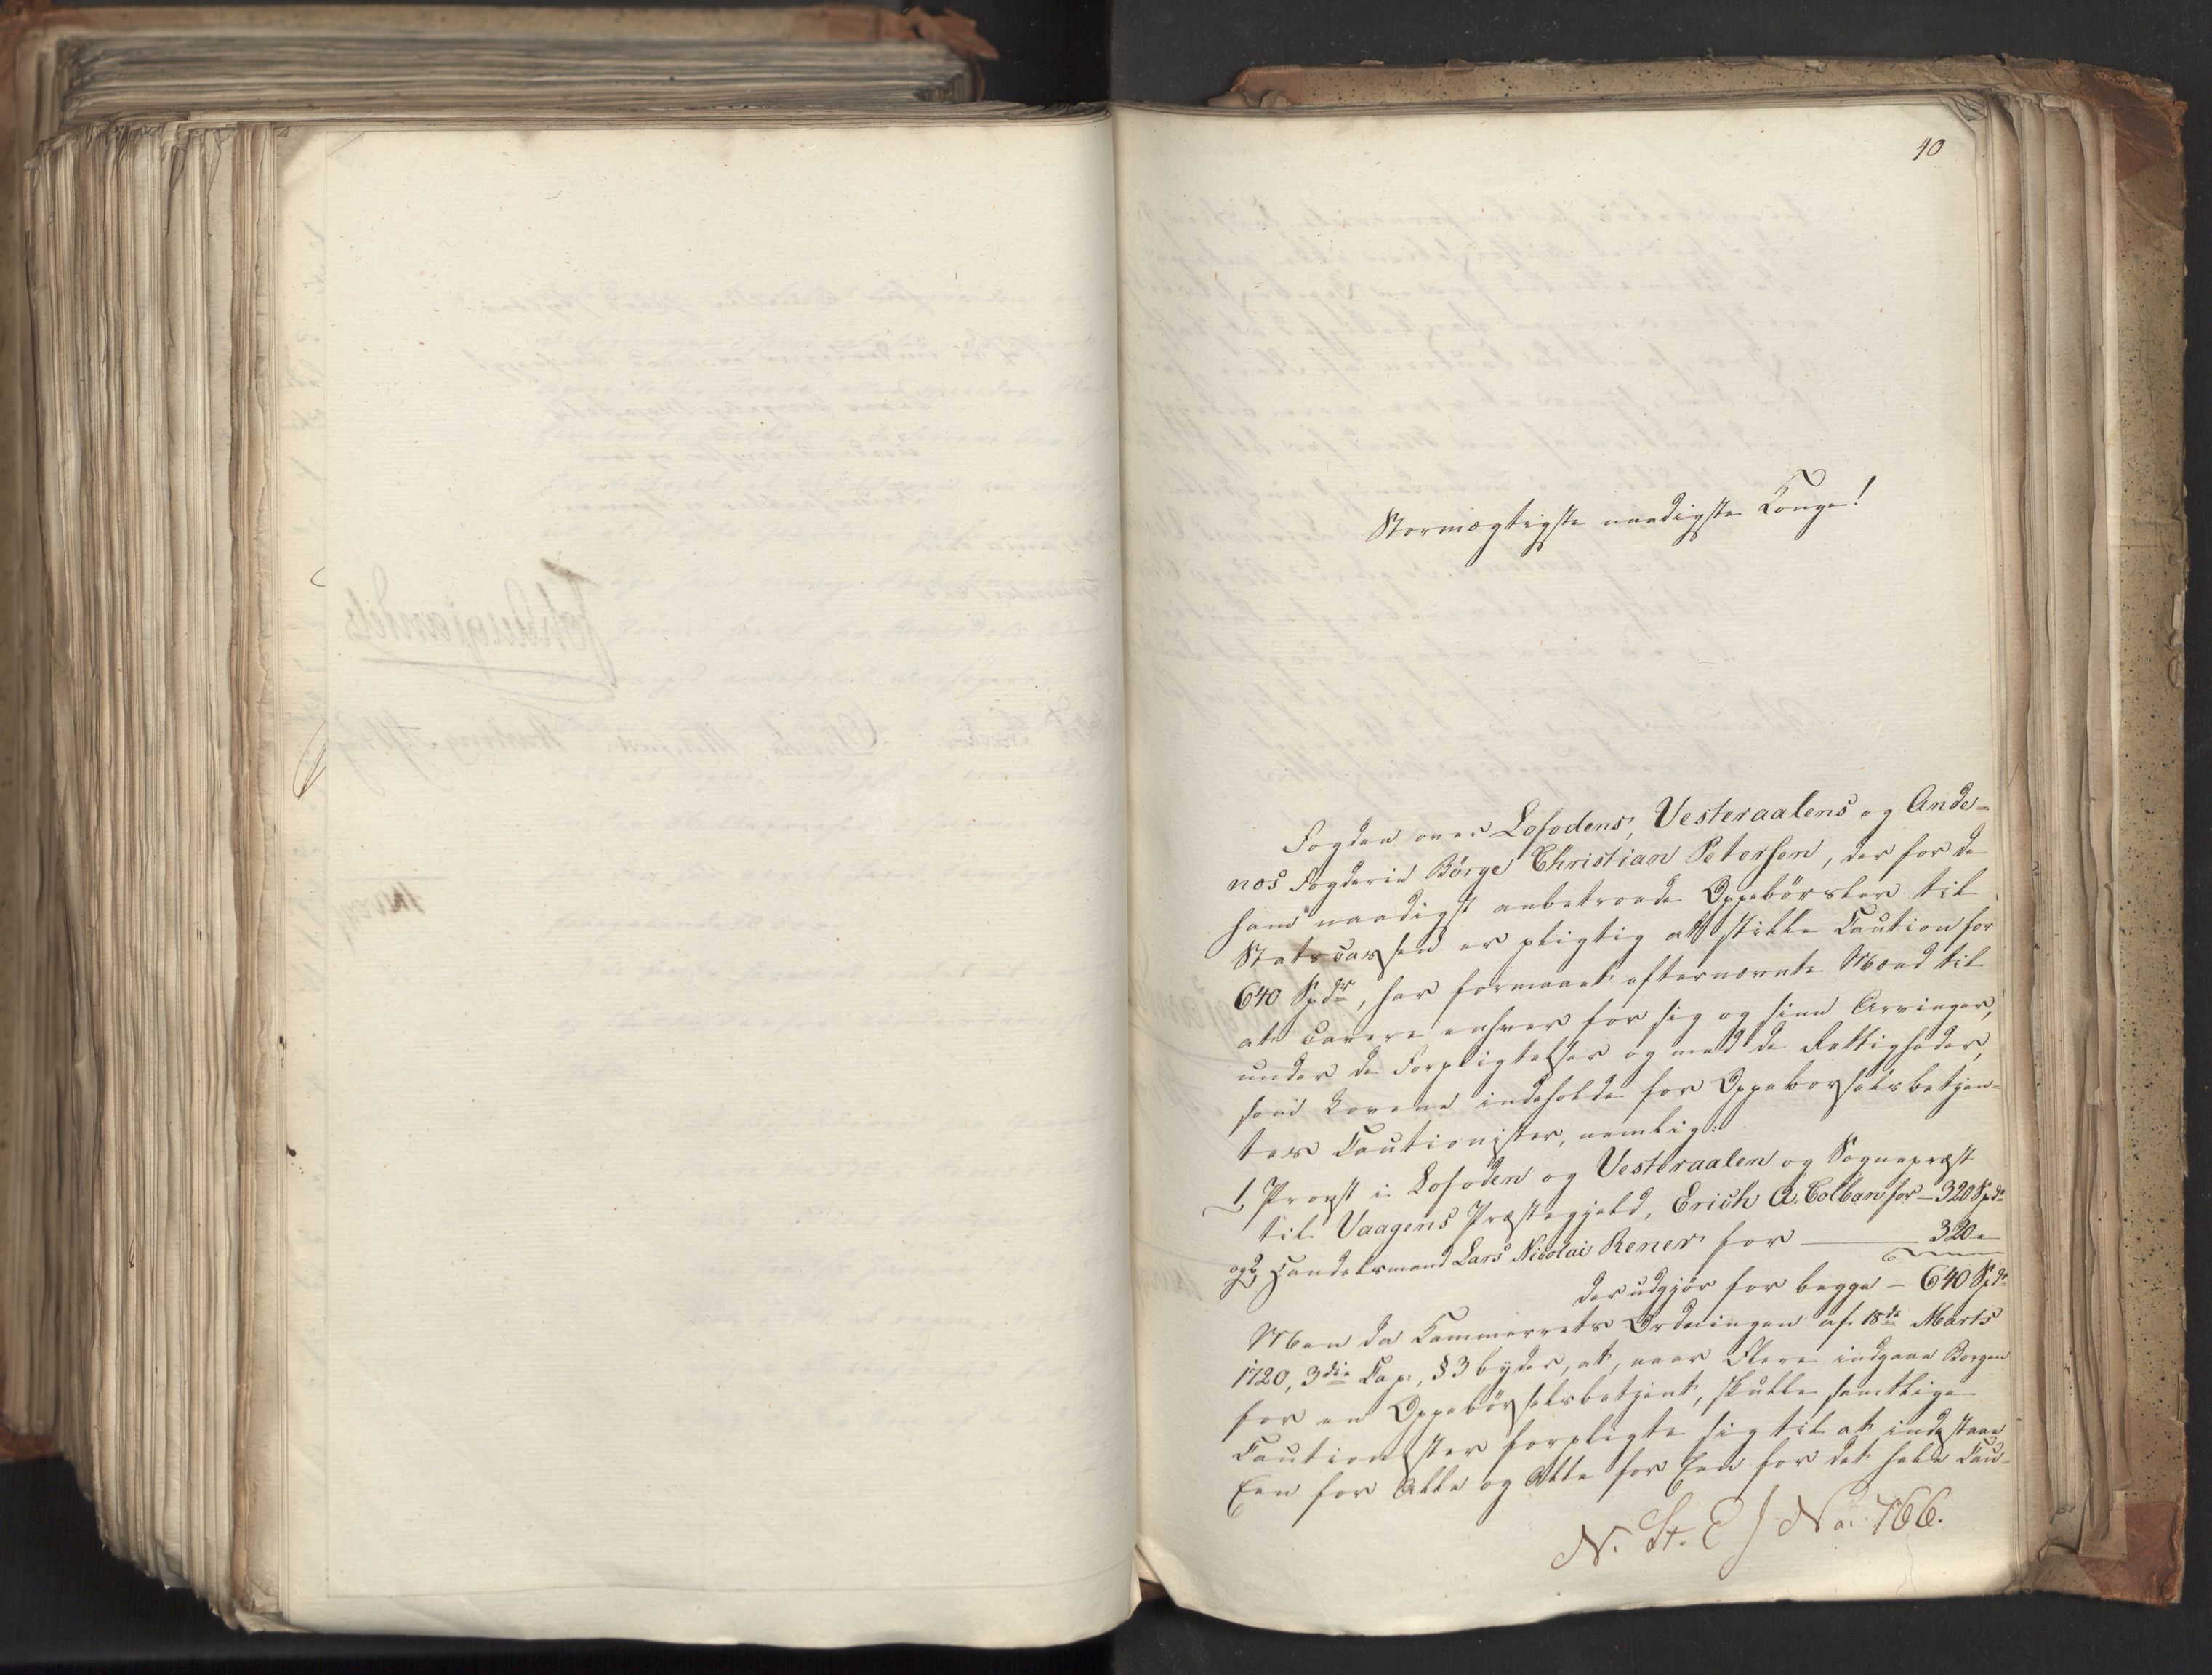 40
Stormægtigste naadigste Konge!
Fogden over Lofodens, Vesteraalens og Ande-
næs Fogderie Börge Christian Petersen, der for de
ham naadigst anbetroede Oppebörsler til
Statscassen er pligtig at stille Caution for
640 Spdr, har formaaet efternævnte Mænd til
at cavere enhver for sig og sine Arvinger,
under de Forpligtelser og med de Rettigheder,
som Lovene indeholde for Oppeborselsbetjen-
tes Cautionister, nemlig:
1, Provst i Lofoden og Vesteraalen og Sognepræst
til Vaagens Præstegjeld, Erich A. Colban for - 320 Spdr
og 2, Handelsmand Lars Nicolai Rener for 320 "
der udgjör for begge - 640 Spdr
Men da Kammerrets Ordningen af 18de Marts
1720, 3die Cap., § 3 byder, at, naar Flere indgaae Borgen
for en Oppebörselsbetjent, skulle samtlige
Cautionister forpligte sig til at indestaae
Een for Alle og Alle for Een for det hele Cau-
N. St. E J No 766.